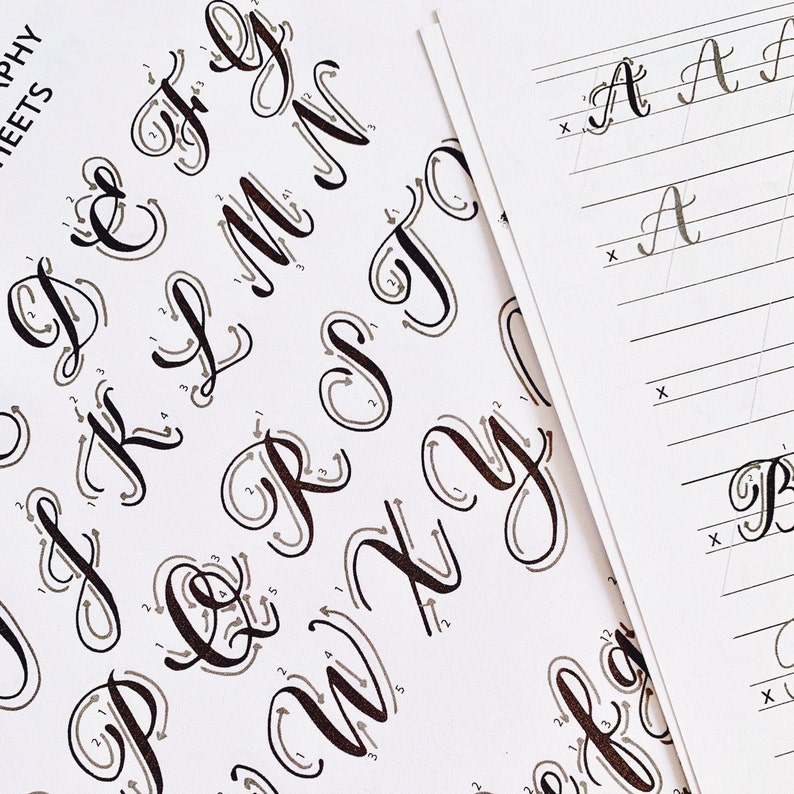 APHY
HEETS
D E F G
J K L M N
P Q R S T
W X Y
e f g
A A A
x
A
x
x
B
x
x